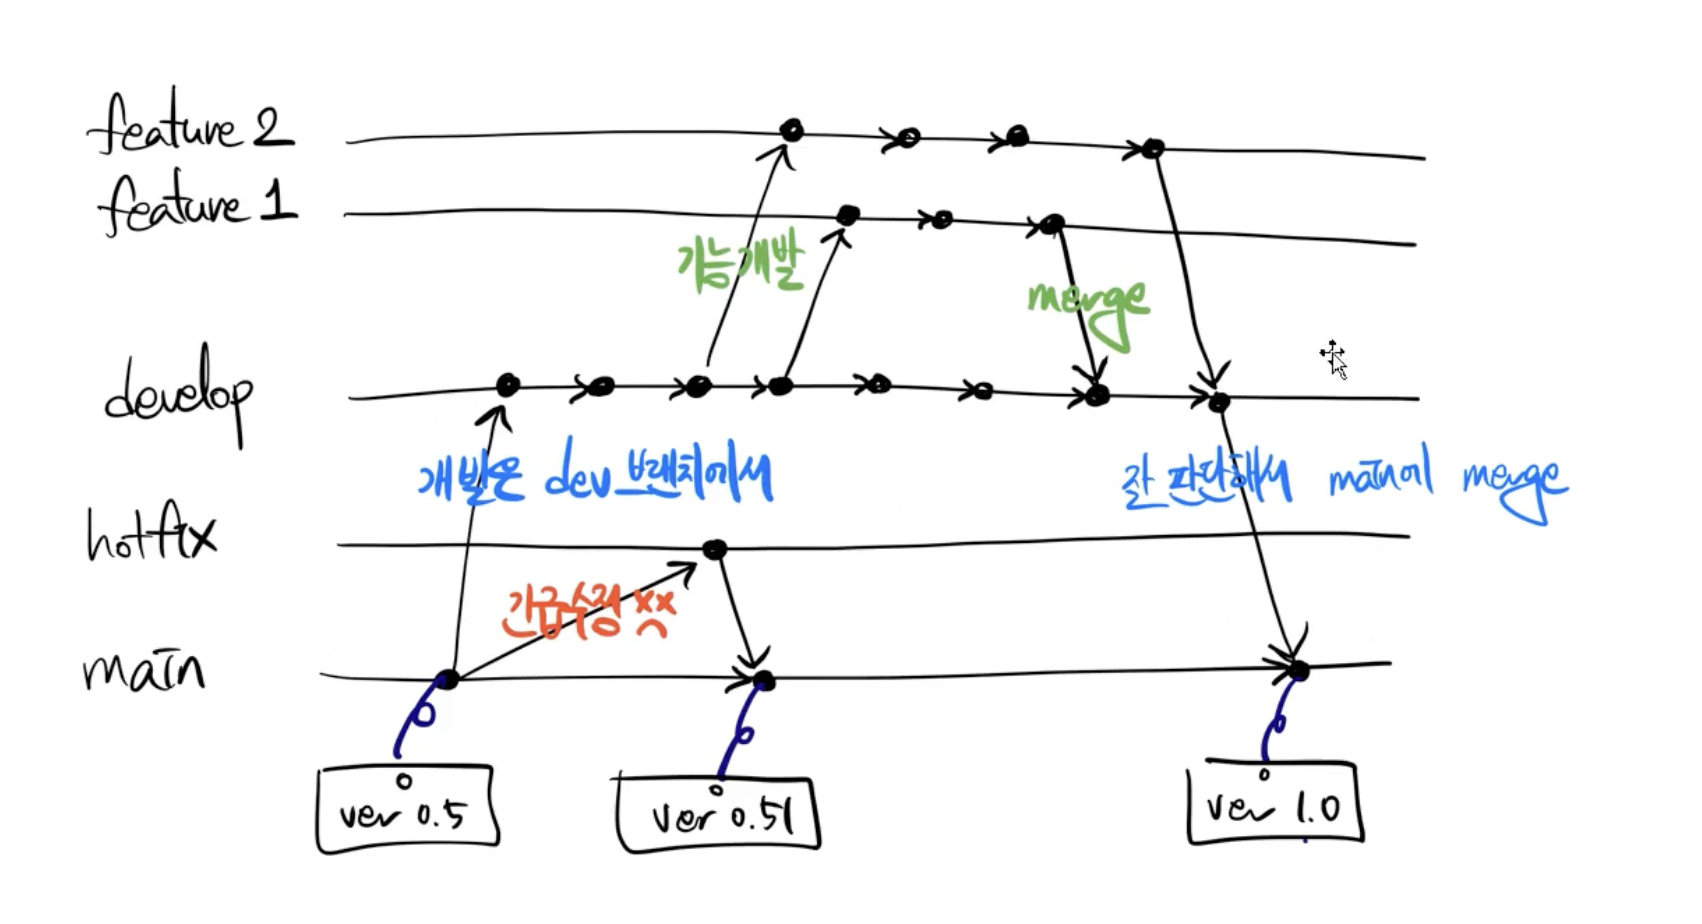 feature 2
feature 1
기능개발
merge
develop
개발은 dev 브랜치에서
잘 판단해서 main에 merge
hotfix
긴급수정 ㅊㅊ
main
ver 0.5
ver 0.51
ver 1.0